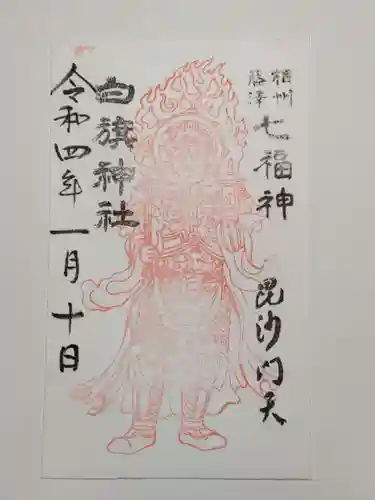 相州
藤澤
七福神
毘沙門天
白旗神社
令和四年一月十日